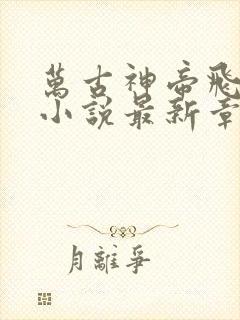 萬古神帝飛
小說最新章
月離爭